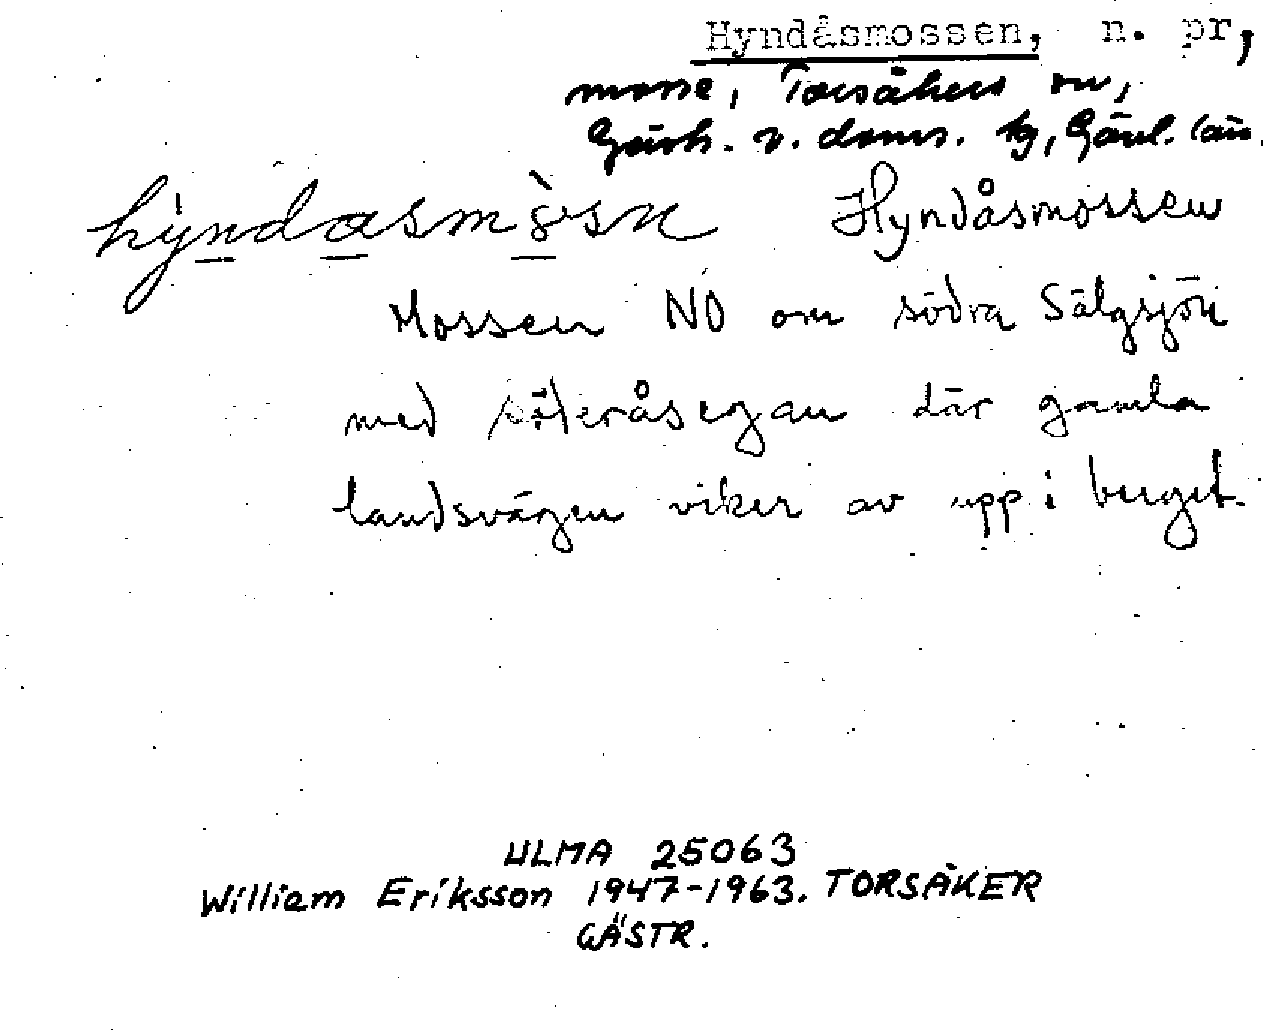 Hyndåsmossen, n. pr,
mosse, Torsåkers sn,
Gästr. v. doms. tg, Gävl. län.
hyndasmòsn Hyndåsmossen
Mossen NO om södra Sälgsjön
med där gamla
landsvägen viker av upp i berget.
ULMA 25063
William Eriksson 1947-1963. TORSÅKER
GÄSTR.